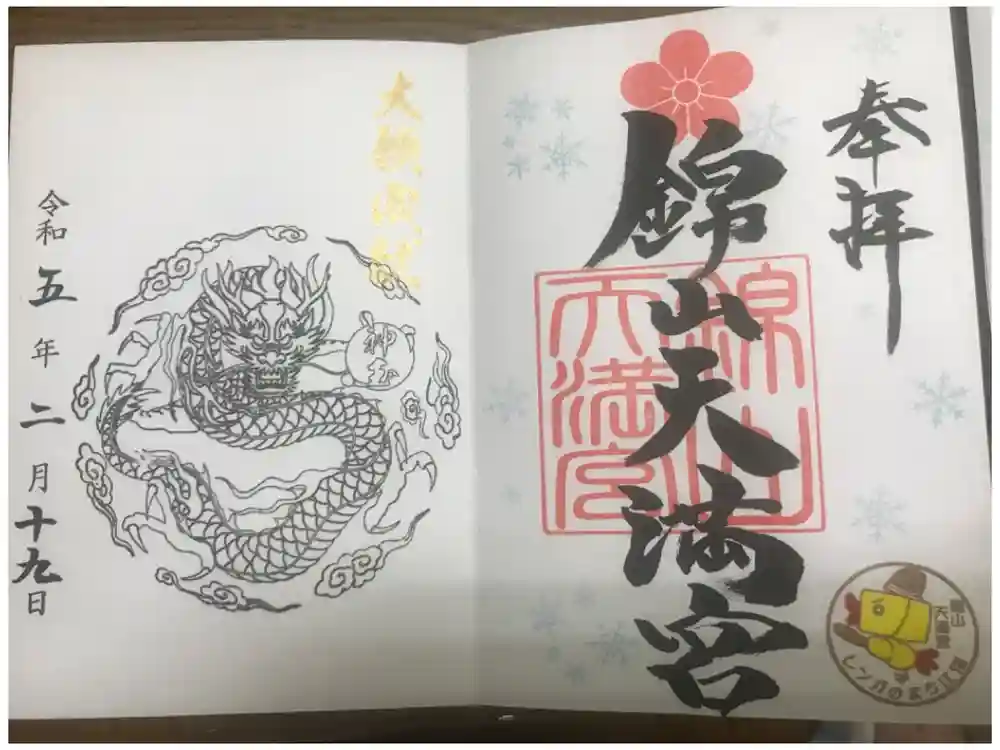 奉拝
錦山天満宮
錦山
天満宮
錦山
天満宮
レンガのまち江別
大願成就
令和五年二月十九日